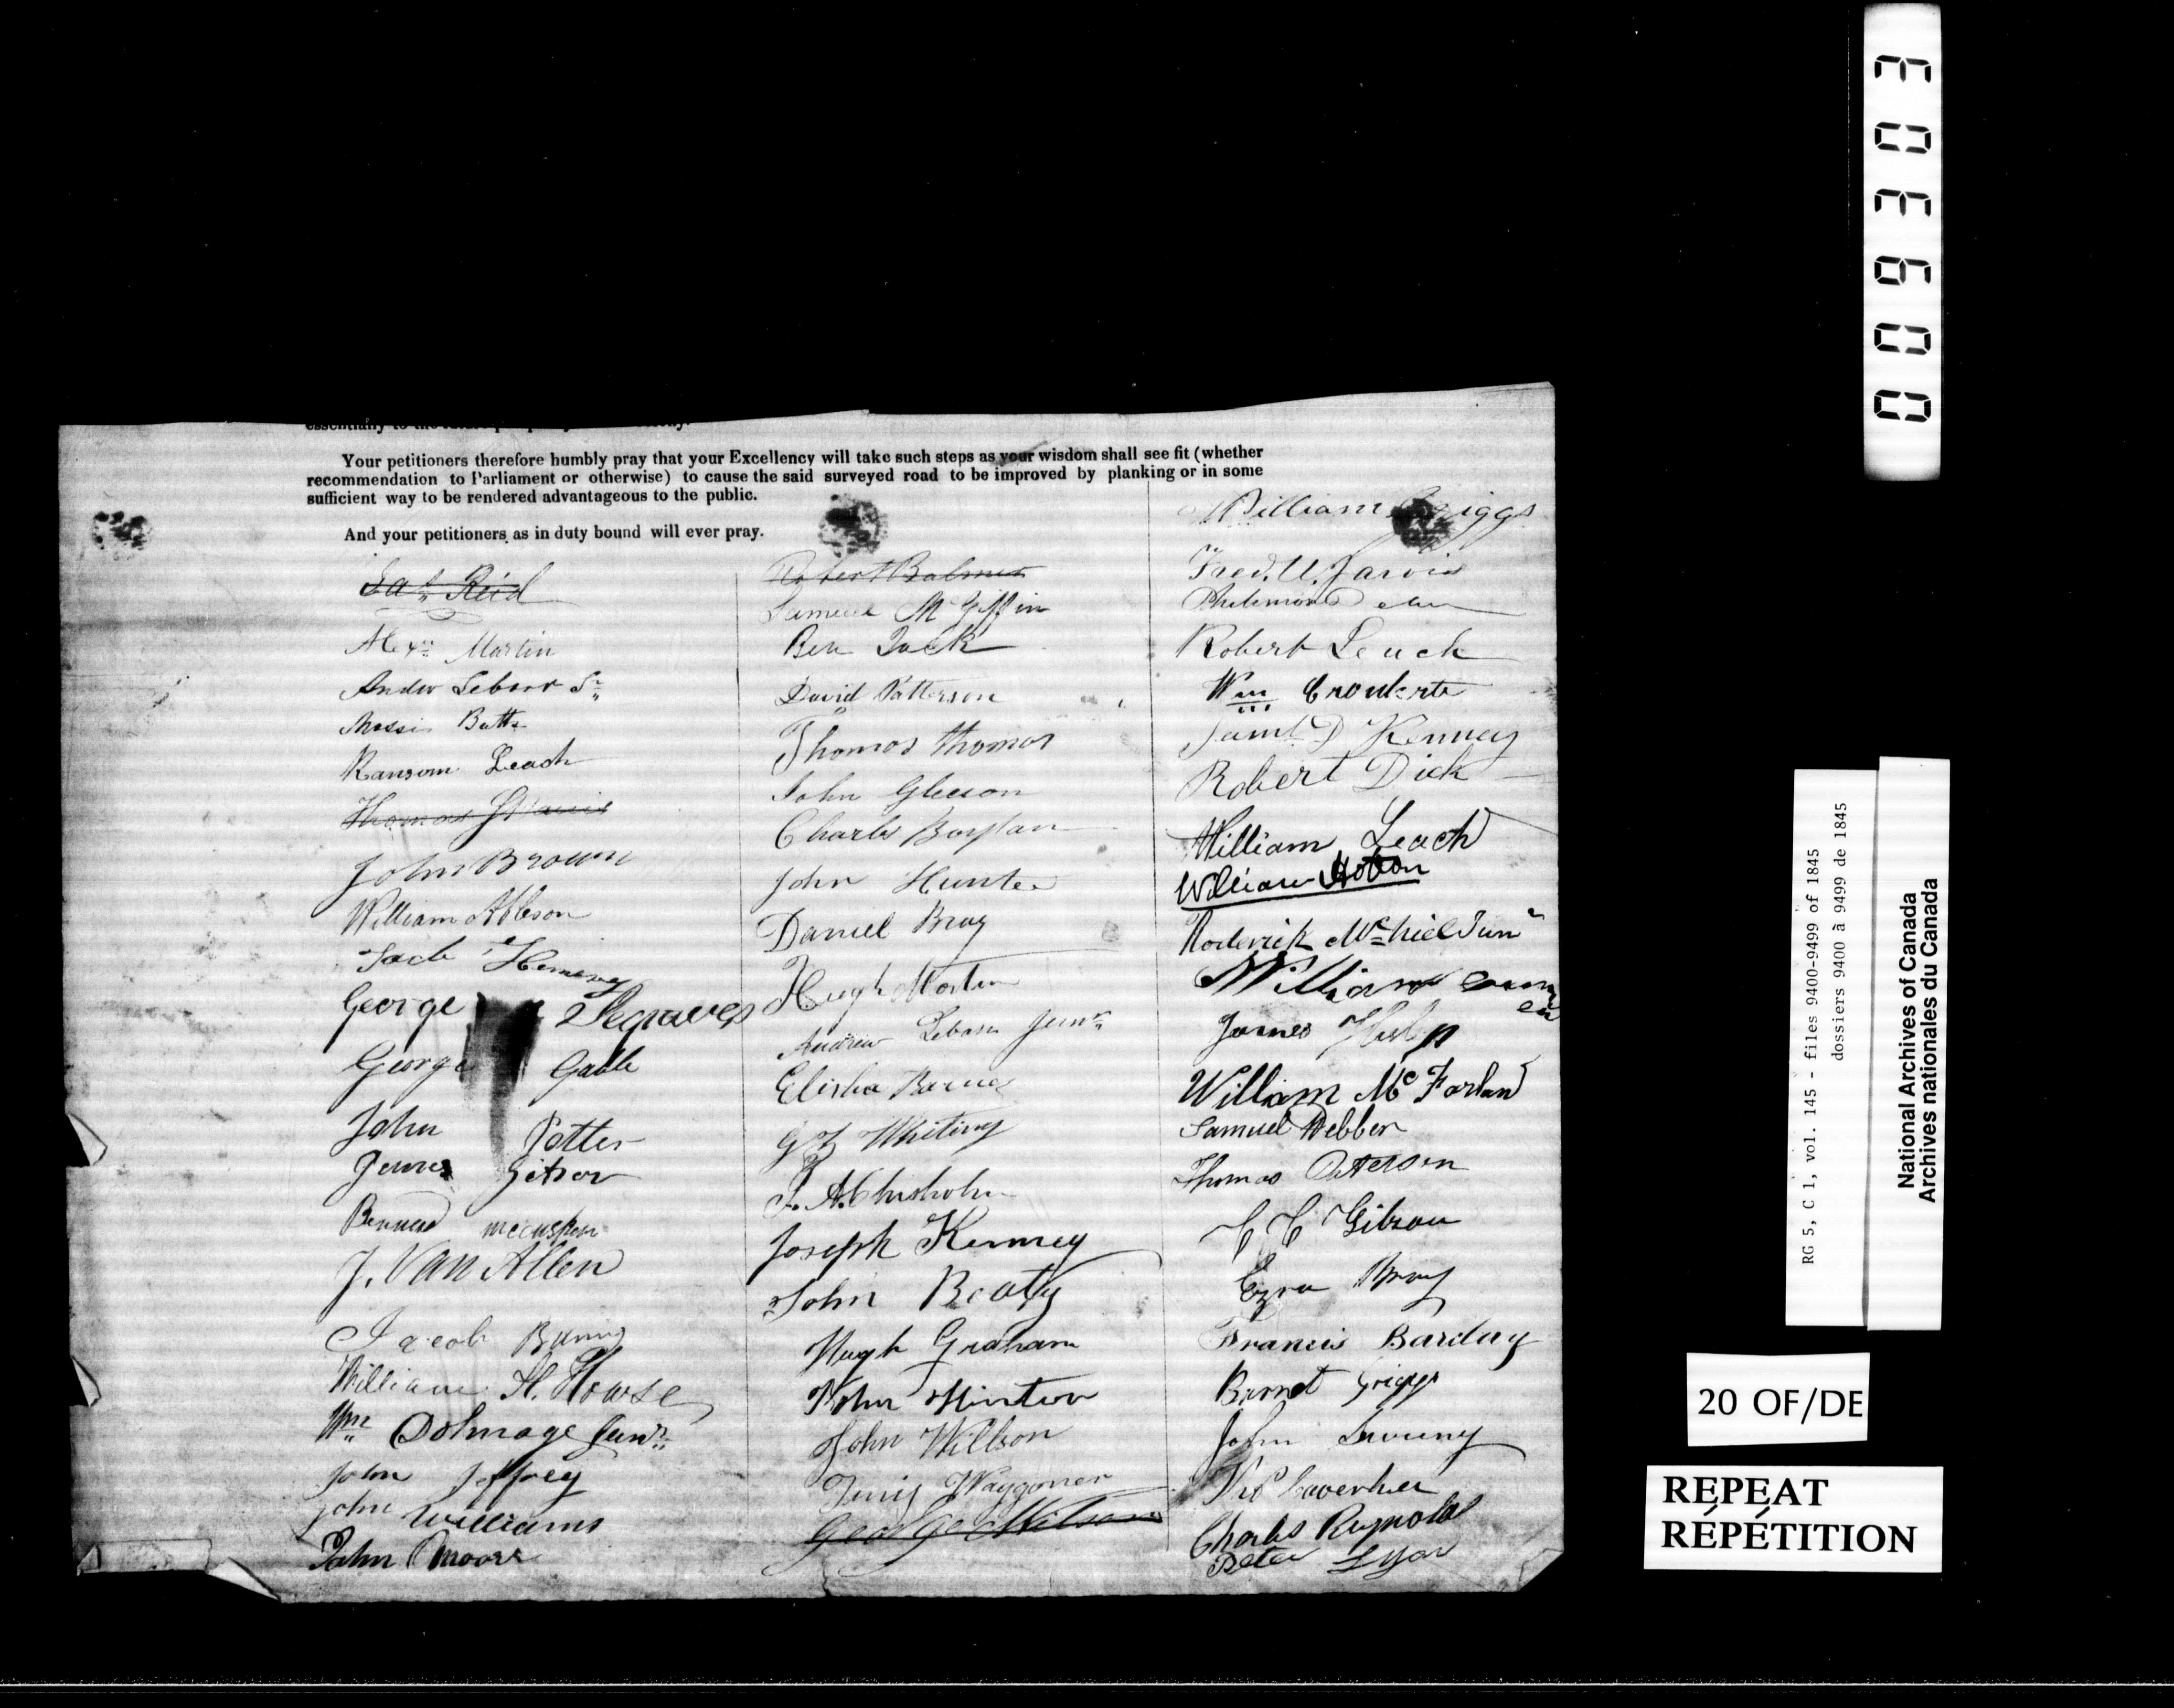 essentially to the future
Your petitioners therefore humbly pray that your Excellency will take such steps as your wisdom shall see fit (whether
recommendation to Parliament or otherwise) to cause the said surveyed road to be improved by planking or in some
sufficient way to be rendered advantageous to the public.
And your petitioners as in duty bound will ever pray.
Reid
Alexr Martin
Andw Lebarr Sr
Butts
Ransom Leach
Thomas
John Brown
William
Jacb
George Segraves
George Gable
John Potter
James
Bernard
J. Van Allen
Jacob
William H. Howse
Wm Dolmage Junr
John Jeffrey
John Williams
John Moore
Robert Balmer
Samuel McGiffin
Ben Jack
David Patterson
Thomas Thomas
John Gleeson
Charles Boylan
John Hunter
Daniel Bray
Hugh Morton
Andrew Lebarr Junr
Elisha Barnes
Whiting
Chisholm
Joseph Kenney
John Beaty
Hugh Graham
John Hinton
John Willson
Waggoner
George Wilson
William Griggs
Fred. U. Jarvis
Philemon
Robert Leach
Wm
Saml D Kenney
Robert Dick
William Leach
William Hobon
Roderick Junr
William
James
William McFarland
Samuel Webber
Thomas Paterson
Gibson
Ezra Bray
Francis Barclay
Barnet Griggs
John
Caverhill
Charles Reynolds
Peter Lyon
0 0 9 3 0 3
RG 5, C 1, vol. 145 - files 9400-9499 of 1845
dossiers 9400 à 9499 de 1845
National Archives of Canada
Archives nationales du Canada
20 OF/DE
REPEAT
RÉPÉTITION